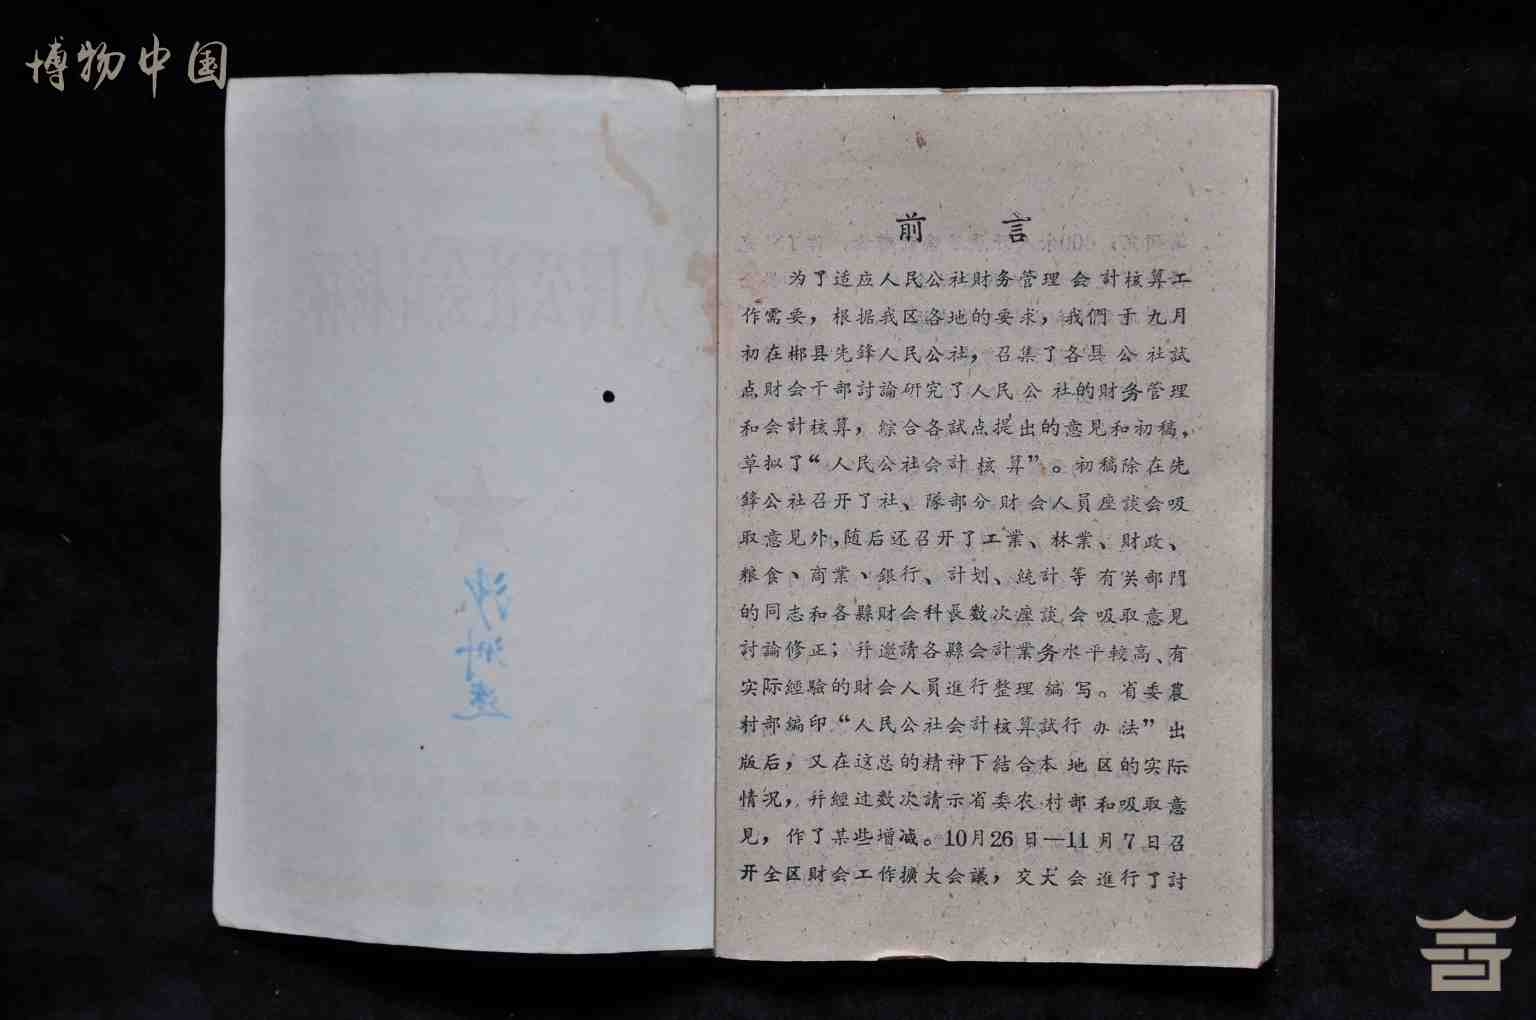 博物中国
前言
为了适应人民公社財务管理会計核算工
作需要，根据我区各地的要求，我們于九月
初在郴县先鋒人民公社，召集了各县公社試
点財会干部討論研究了人民公社的財务管理
和会計核算，綜合各試点提出的意见和初稿，
草拟了“人民公社会計核算”。初稿除在先
鋒公社召开了社、隊部分財会人員座談会吸
取意见外，随后还召开了工業、林業、財政、
粮食、商業、銀行、計划、統計等有关部門
的同志和各縣財会科長数次座談会吸取意见
討論修正；幷邀請各縣会計業务水平較高、有
实际經驗的財会人員進行整理編写。省委農
村部編印“人民公社会計核算試行办法”出
版后，又在这总的精神下結合本地区的实际
情况，幷經过数次請示省委农村部和吸取意
见，作了某些增减。10月26日—11月7日召
开全区財会工作擴大会議，交大会進行了討